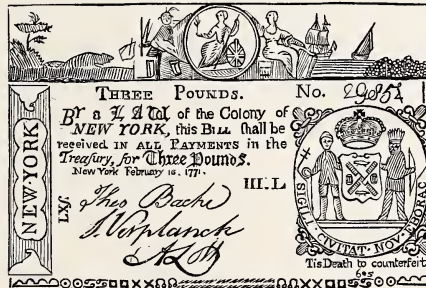 THREE POUNDS.
No. 29085
By a LAW of the Colony of
NEW YORK, this BILL ſhall be
received IN ALL PAYMENTS in the
Treaſury, for Three Pounds.
New York February 16. 1771.
III.L
NEW·YORK
LXS.
Theo Bache
S. Verplanck
SIGILL · CIVITAT · NOV · EBORAC
Tis Death to counterfeit
605